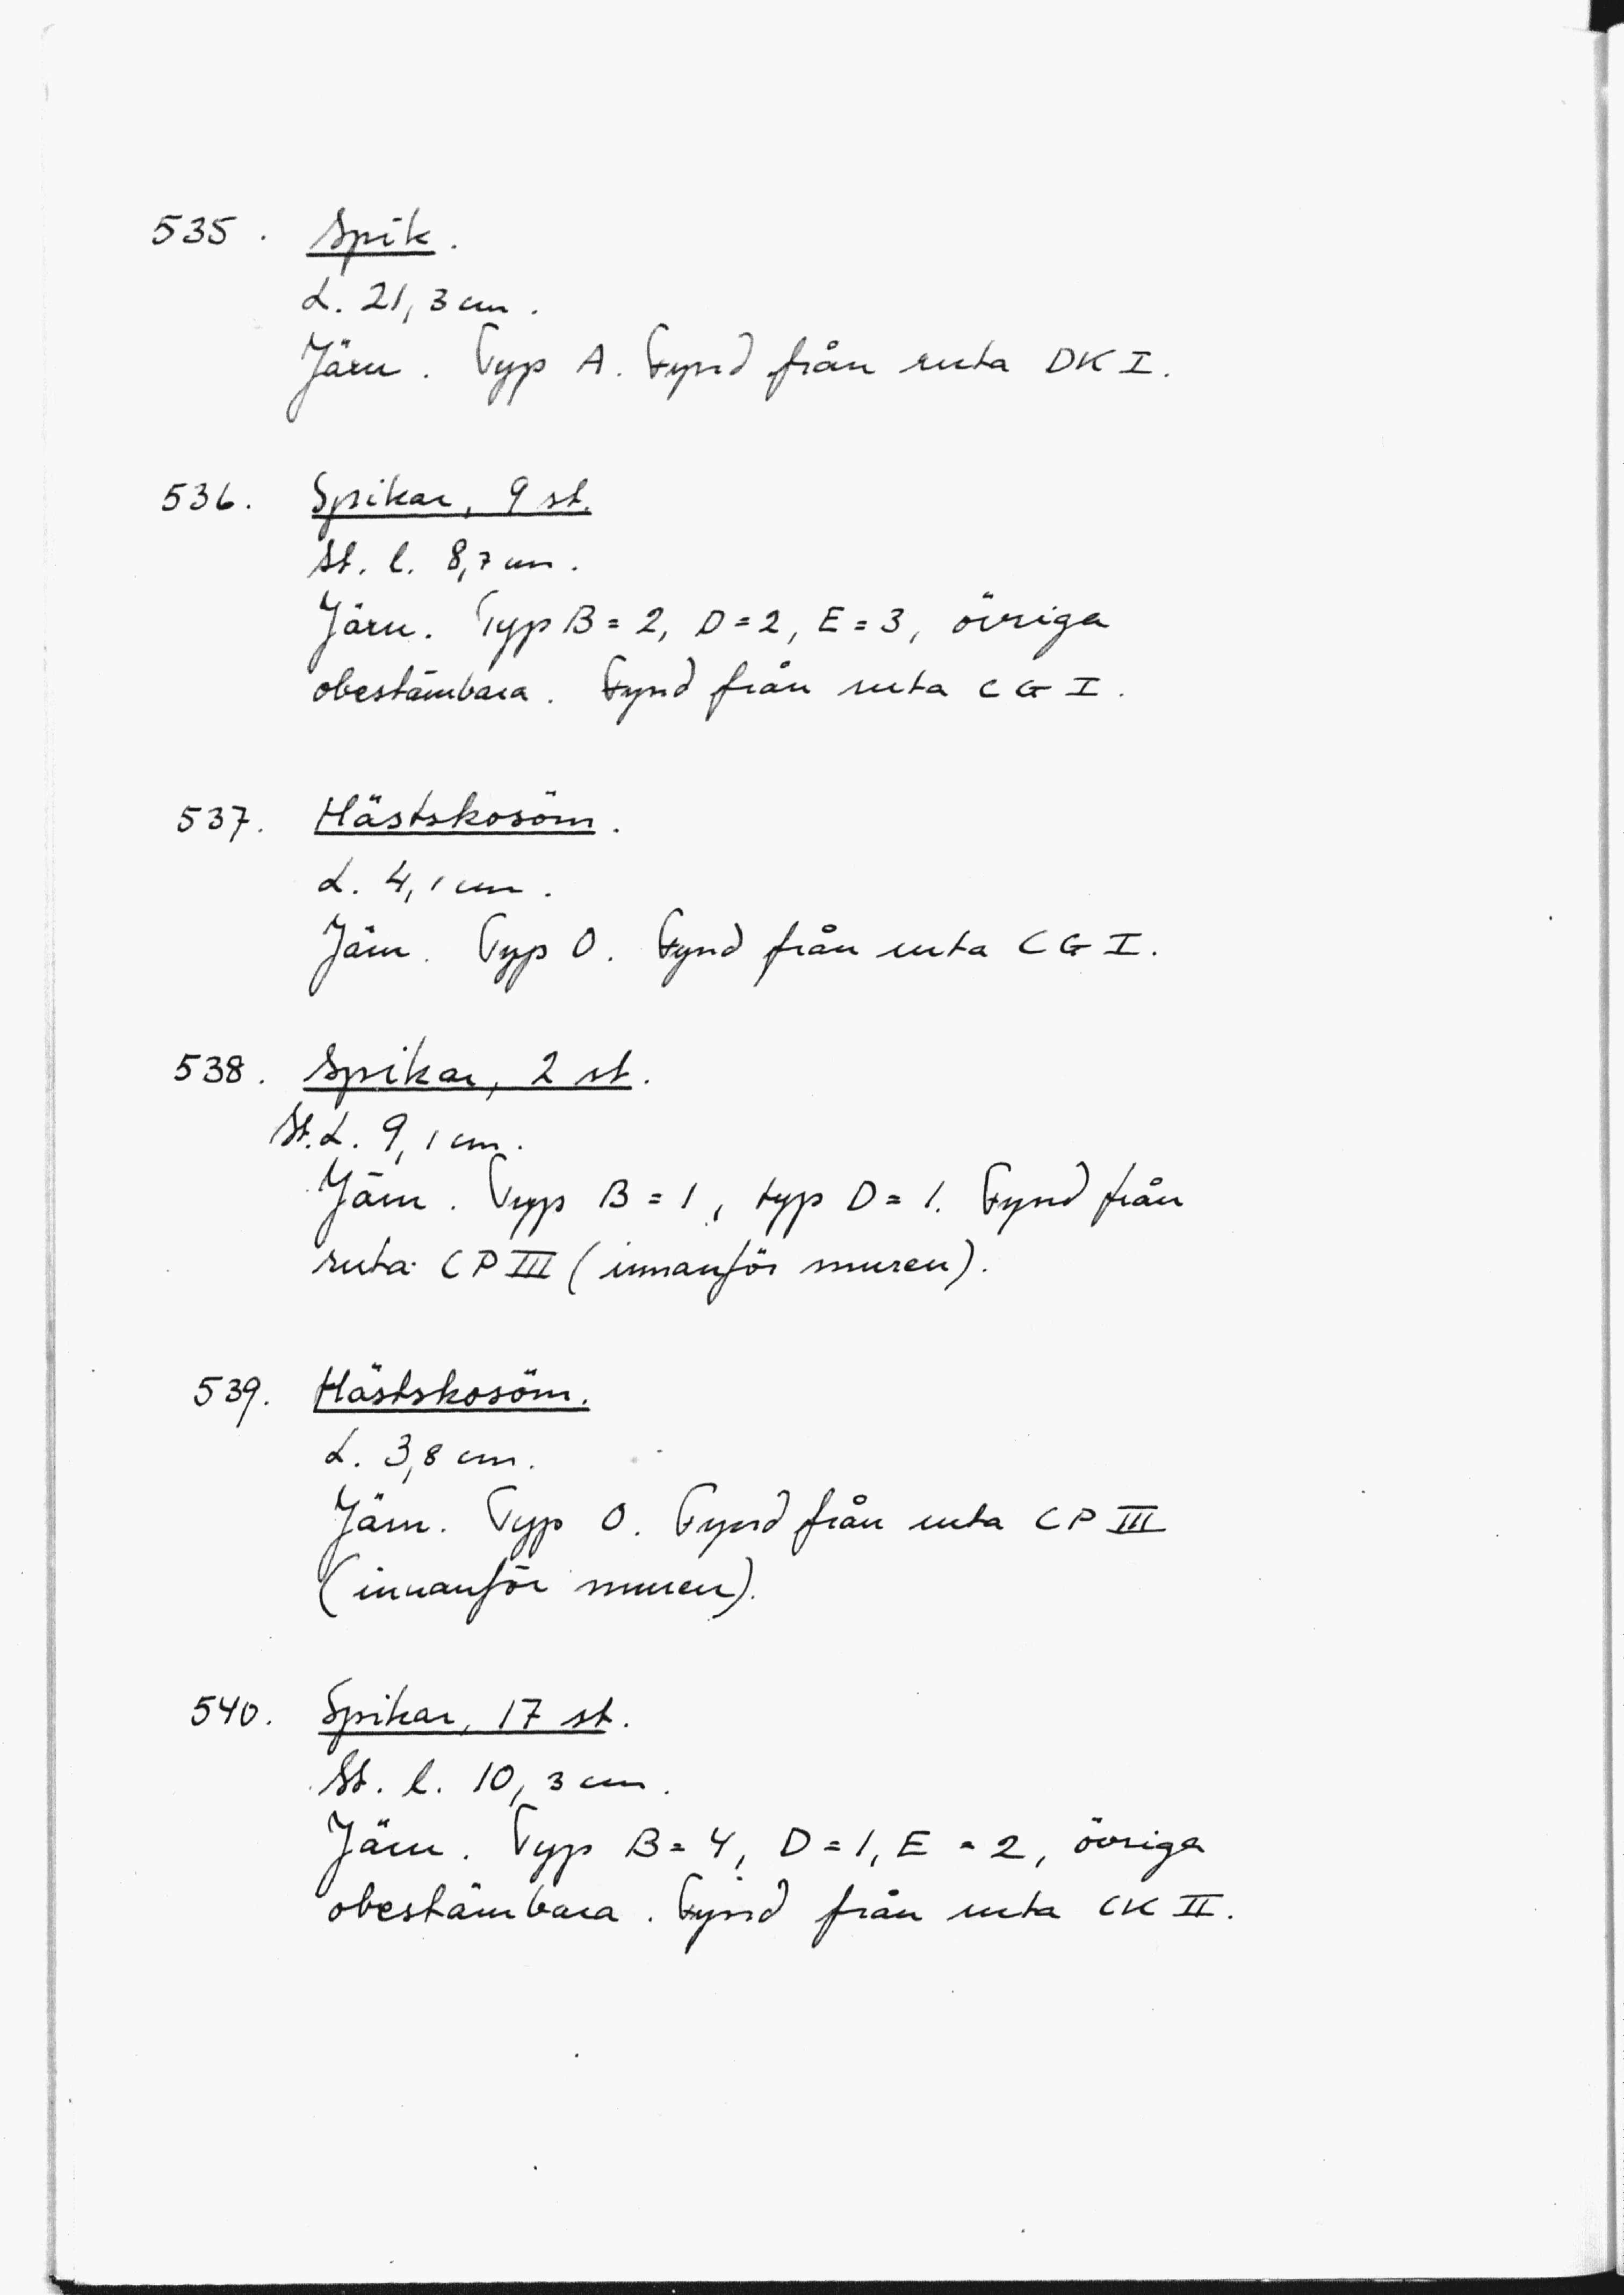 535. Spik.
L. 21,3 cm.
Järn. Typ A. Fynd från ruta DK I.
536. Spikar, 9 st.
St. l. 8,7 cm.
Järn. Typ B = 2, D = 2, E = 3, övriga
obestämbara. Fynd från ruta CG I.
537. Hästskosöm.
L. 4,1 cm.
Järn. Typ O. Fynd från ruta CG I.
538. Spikar, 2 st.
St. L. 9,1 cm.
Järn. Typ B = 1, typ D = 1. Fynd från
ruta CP III (innanför muren).
539. Hästskosöm.
L. 3,8 cm.
Järn. Typ O. Fynd från ruta CP III
(innanför muren).
540. Spikar, 17 st.
St. l. 10,3 cm.
Järn. Typ B = 4, D = 1, E = 2, övriga
obestämbara. Fynd från ruta CK II.